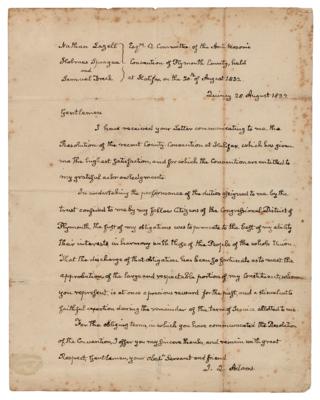 Nathan Lazell
Holmes Sprague
and
Samuel Breck
Esqrs. a Committee of the Anti Masonic
Convention of Plymouth County, held
at Halifax on the 20th of August 1832
Quincy 28 August 1832
Gentlemen
I have received your Letter communicating to me the
Resolution of the recent County Convention at Halifax, which has given
me the highest satisfaction, and for which the Convention are entitled to
my grateful acknowledgments.
In undertaking the performance of the duties assigned to me by the
trust confided to me by my fellow Citizens of the Congressional District of
Plymouth, the first of my obligations was to promote to the best of my ability
Their interests, in harmony with those of the People of the whole Union
That the discharge of that obligation has been so fortunate as to meet the
approbation of the large and respectable portion of my Constituents, whom
you represent, is at once a precious reward for the past, and a stimulus to
faithful exertion during the remainder of the term of service allotted to me.
For the obliging terms, in which you have communicated the Resolution
of the Convention, I offer you my sincere thanks, and remain with great
Respect, Gentlemen, your obedt. Servant and friend
J. Q. Adams